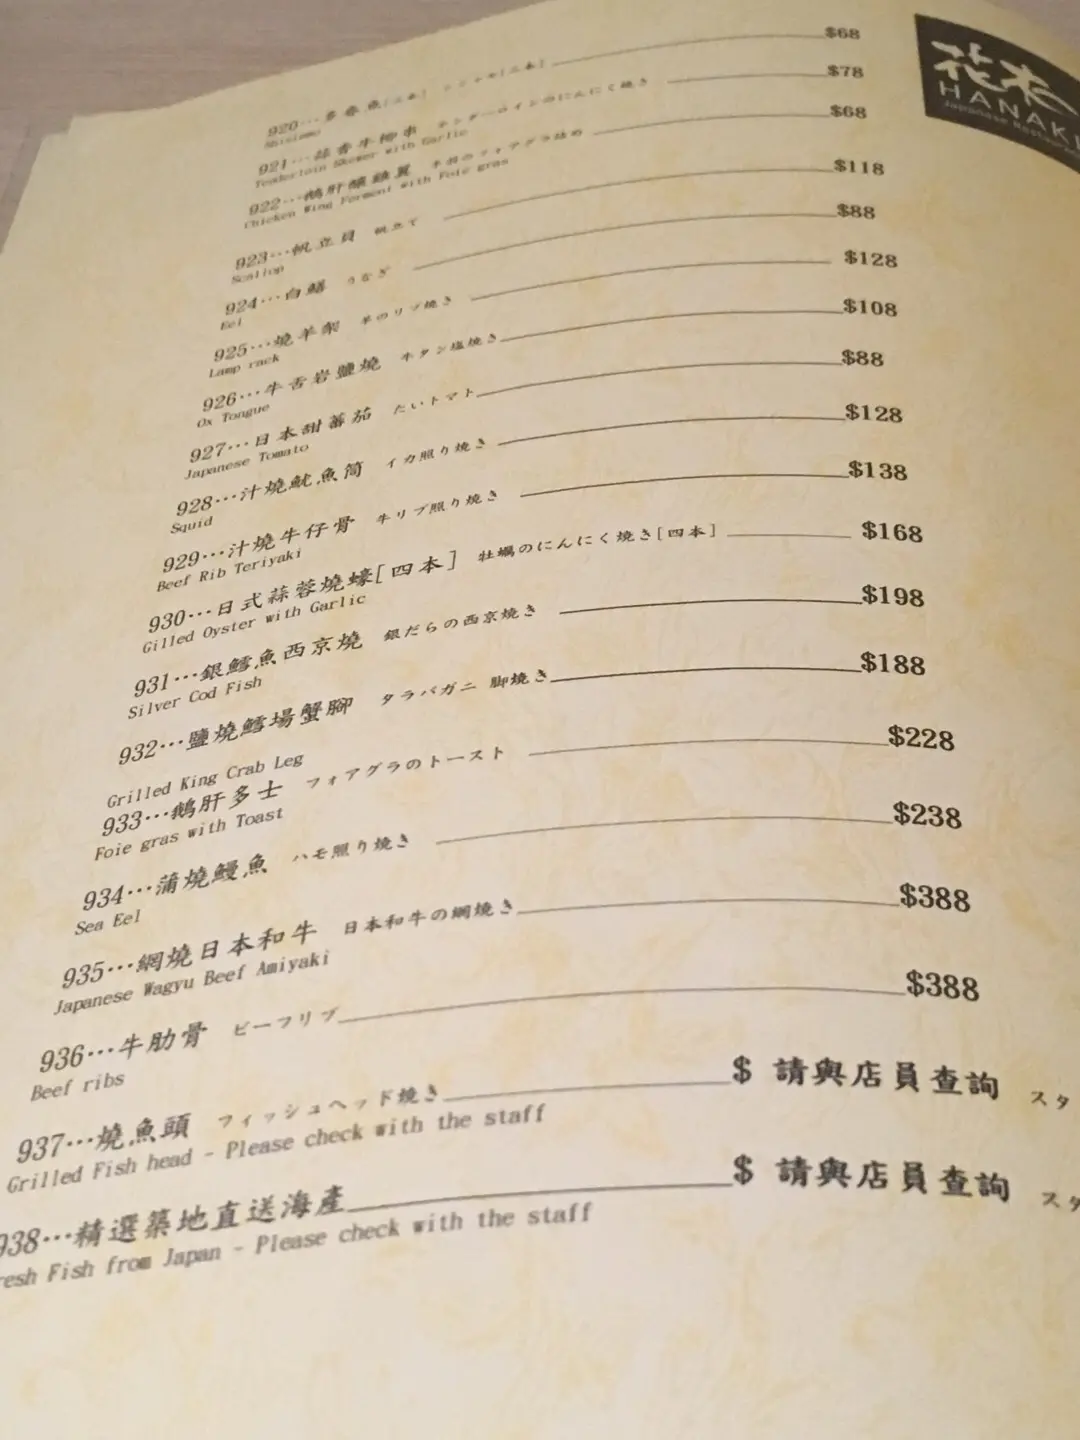 花木
HANAKI
Japanese Restaurant
920…多春魚[二本] シシャモ[二本] $68
Shisiamo
921…蒜香牛柳串 テンダーロインのにんにく焼き $78
Tenderloin Skewer with Garlic
922…鵝肝釀雞翼 手羽のフォアグラ詰め $68
Chicken Wing Forment with Foie gras
923…帆立貝 帆立て $118
Scallop
924…白鱔 うなぎ $88
Eel
925…燒羊架 羊のリブ焼き $128
Lamp rack
926…牛舌岩鹽燒 牛タン塩焼き $108
Ox Tongue
927…日本甜蕃茄 たいトマト $88
Japanese Tomato
928…汁燒魷魚筒 イカ照り焼き $128
Squid
929…汁燒牛仔骨 牛リブ照り焼き $138
Beef Rib Teriyaki
930…日式蒜蓉燒蠔[四本] 牡蠣のにんにく焼き[四本] $168
Gilled Oyster with Garlic
931…銀鱈魚西京燒 銀だらの西京焼き $198
Silver Cod Fish
932…鹽燒鱈場蟹腳 タラバガニ 脚焼き $188
Grilled King Crab Leg
933…鵝肝多士 フォアグラのトースト $228
Foie gras with Toast
934…蒲燒鰻魚 ハモ照り焼き $238
Sea Eel
935…網燒日本和牛 日本和牛の網焼き $388
Japanese Wagyu Beef Amiyaki
936…牛肋骨 ビーフリブ $388
Beef ribs
937…燒魚頭 フィッシュヘッド焼き $ 請與店員查詢 スタ
Grilled Fish head - Please check with the staff
938…精選築地直送海產 $ 請與店員查詢 スタ
resh Fish from Japan - Please check with the staff